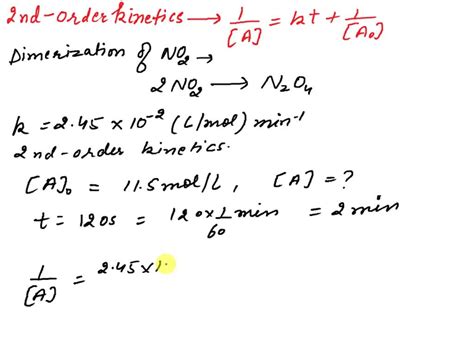 2nd-order kinetics → 1/[A] = kt + 1/[A₀]
Dimerization of NO₂ →
2NO₂ → N₂O₄
k = 2.45 × 10⁻² (L/mol) min⁻¹
2nd-order kinetics.
[A]₀ = 11.5 mol/L, [A] = ?
t = 120s = 120 × 1/60 min = 2 min
1/[A] = 2.45 × 1